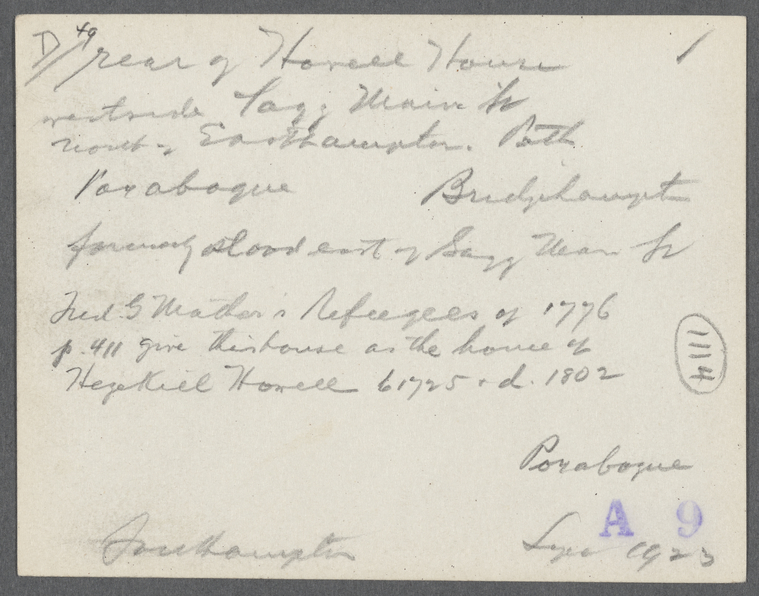 D/49 rear of Howell House 1
westside Sagg Main St
north of Easthampton. Path
Poxabogue Bridgehampton
formerly stood east of Sagg Main St
Fred. G Mather's Refugees of 1776
p. 411 give this house as the home of
Hezekiel Howell b 1725 + d. 1802
Poxabogue
A 9
Southampton 1923